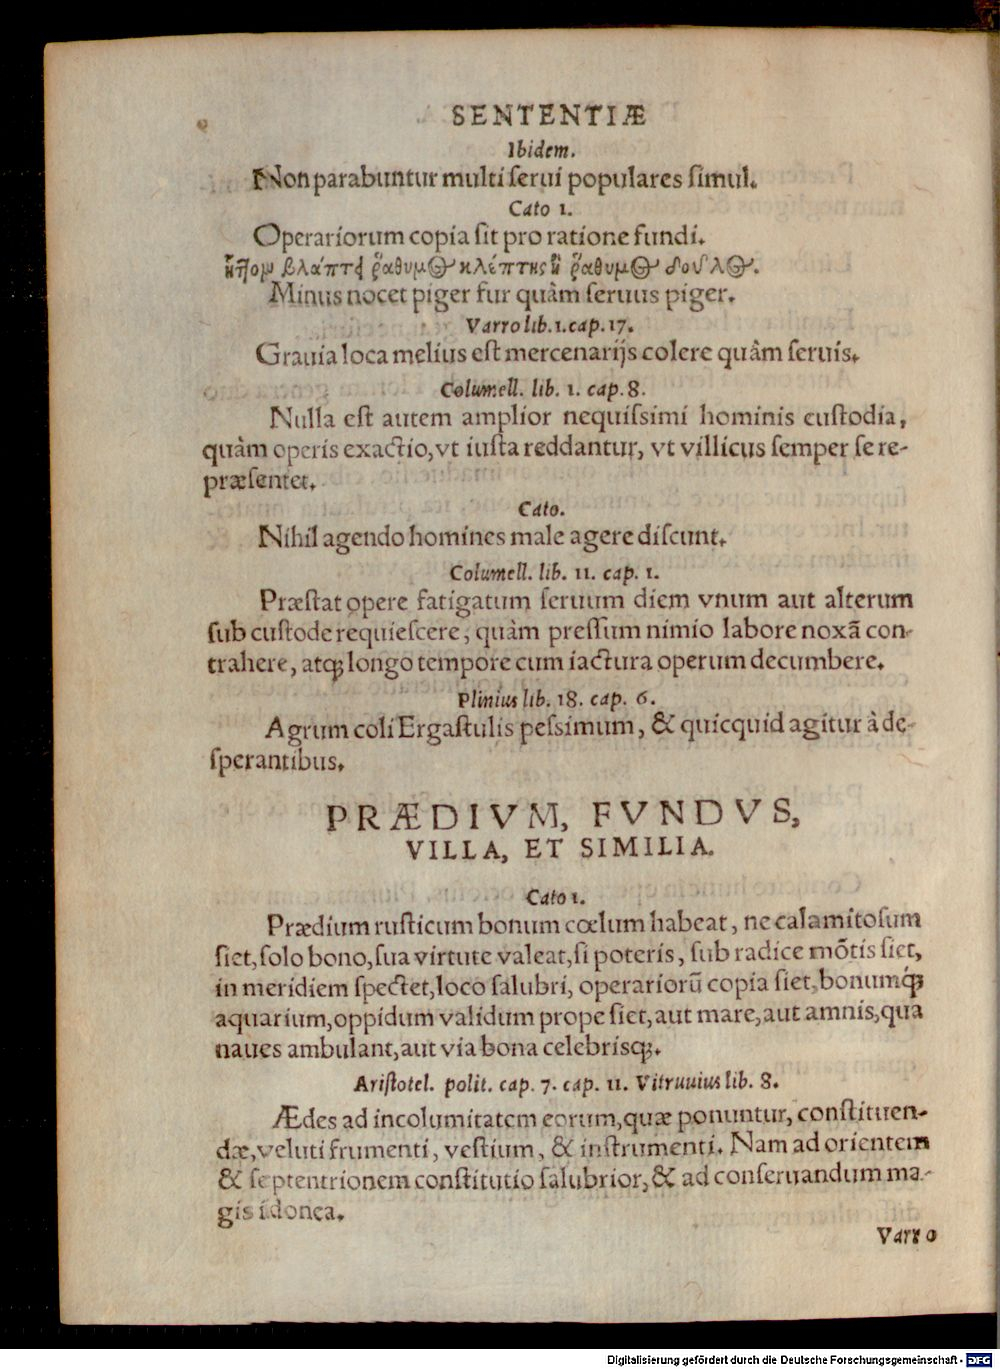 SENTENTIÆ
Ibidem.
Non parabuntur multi serui populares simul.
Cato 1.
Operariorum copia sit pro ratione fundi.
βλάπτει ῥάθυμος κλέπτης ἢ ῥάθυμος δοῦλος.
Minus nocet piger fur quàm seruus piger.
Varro lib. 1. cap. 17.
Grauia loca melius est mercenarijs colere quàm seruis.
Columell. lib. 1. cap. 8.
Nulla est autem amplior nequissimi hominis custodia,
quàm operis exactio, vt iusta reddantur, vt villicus semper se re-
præsentet.
Cato.
Nihil agendo homines male agere discunt.
Columell. lib. 11. cap. 1.
Præstat opere fatigatum seruum diem vnum aut alterum
sub custode requiescere, quàm pressum nimio labore noxā con-
trahere, atq; longo tempore cum iactura operum decumbere.
Plinius lib. 18. cap. 6.
Agrum coli Ergastulis pessimum, & quicquid agitur à de-
sperantibus.
PRÆDIVM, FVNDVS,
VILLA, ET SIMILIA.
Cato 1.
Prædium rusticum bonum cœlum habeat, ne calamitosum
siet, solo bono, sua virtute valeat, si poteris, sub radice mōtis siet,
in meridiem spectet, loco salubri, operariorū copia siet, bonumq́;
aquarium, oppidum validum prope siet, aut mare, aut amnis, qua
naues ambulant, aut via bona celebrisq;.
Aristotel. polit. cap. 7. cap. 11. Vitruuius lib. 8.
Ædes ad incolumitatem eorum, quæ ponuntur, constituen-
dæ, veluti frumenti, vestium, & instrumenti. Nam ad orientem
& septentrionem constitutio salubrior, & ad conseruandum ma-
gis idonea.
Varro
Digitalisierung gefördert durch die Deutsche Forschungsgemeinschaft - DFG